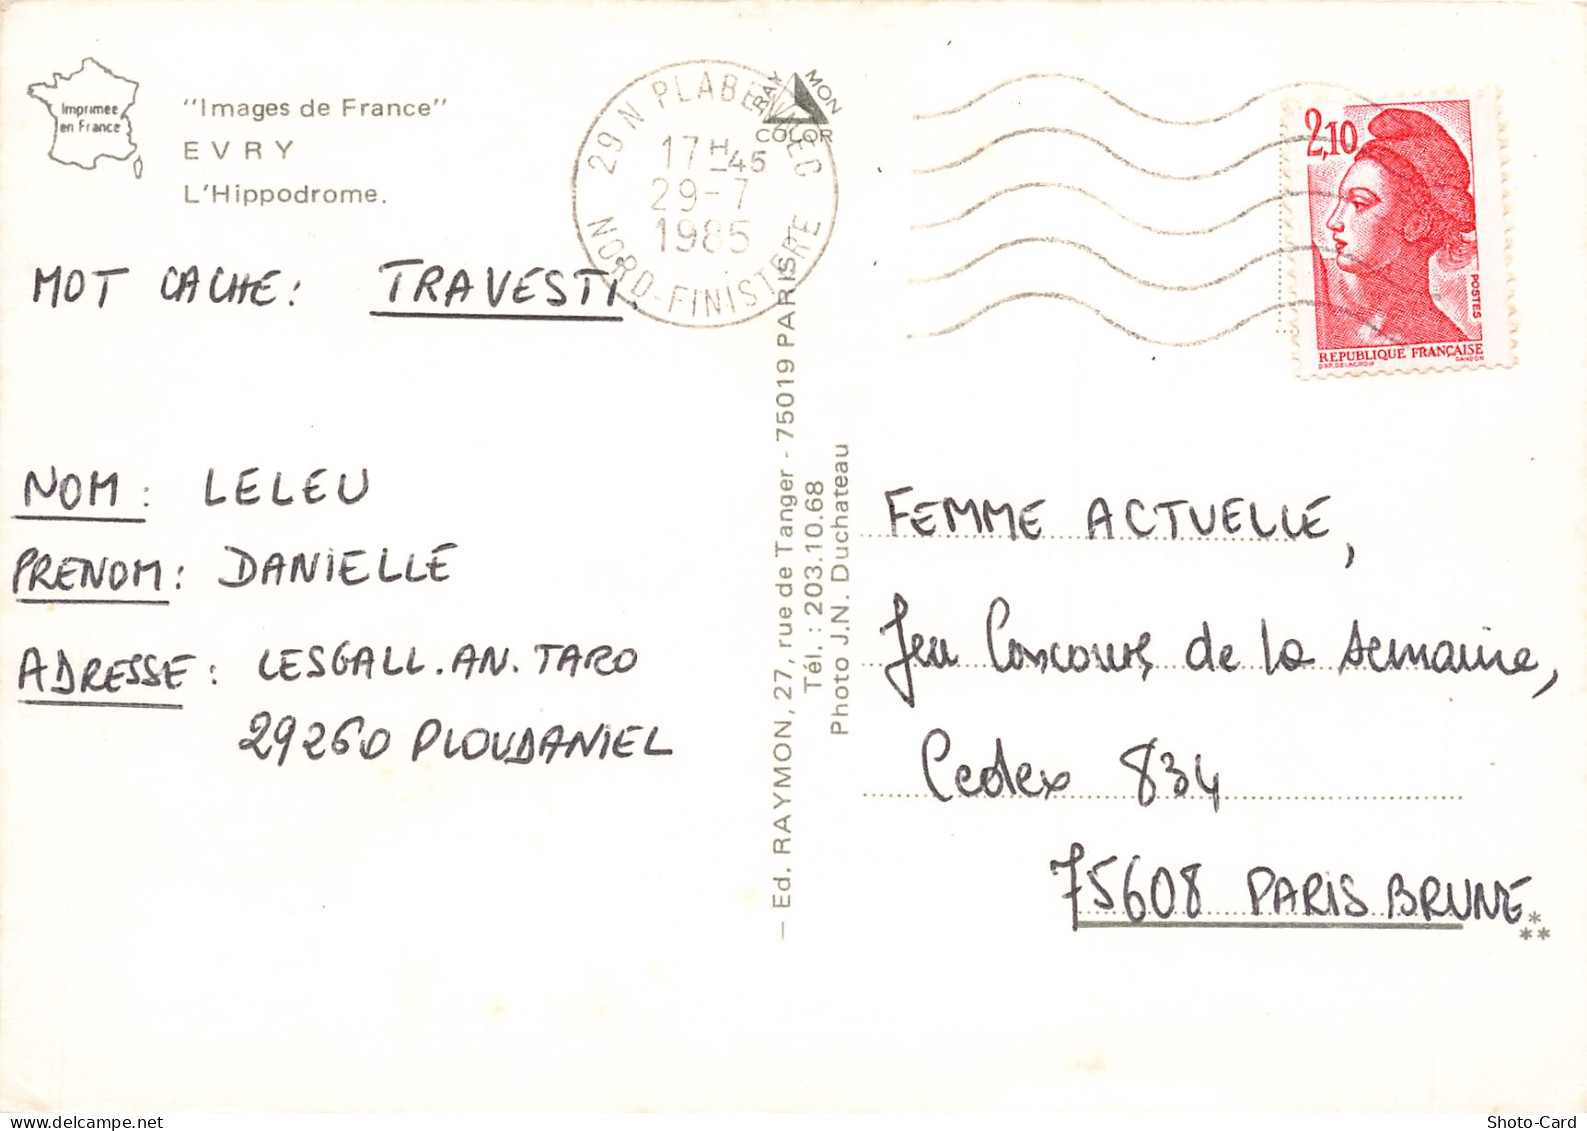 Imprimee
en France
"Images de France"
EVRY
L'Hippodrome.
RAY MON
COLOR
29 N PLABENNEC
17 H -45
29-7
1985
NORD-FINISTERE
2,10
POSTES
REPUBLIQUE FRANÇAISE
D'AP. DELACROIX GANDON
MOT CACHE: TRAVESTI.
NOM: LELEU
PRENOM: DANIELLE
ADRESSE: LESGALL.AN.TARO
29260 PLOUDANIEL
— Ed. RAYMON, 27, rue de Tanger - 75019 PARIS
Tél. : 203.10.68
Photo J.N. Duchateau
FEMME ACTUELLE,
Jeu Concours de la semaine,
Cedex 834
75608 PARIS BRUNE
***
Shoto-Card